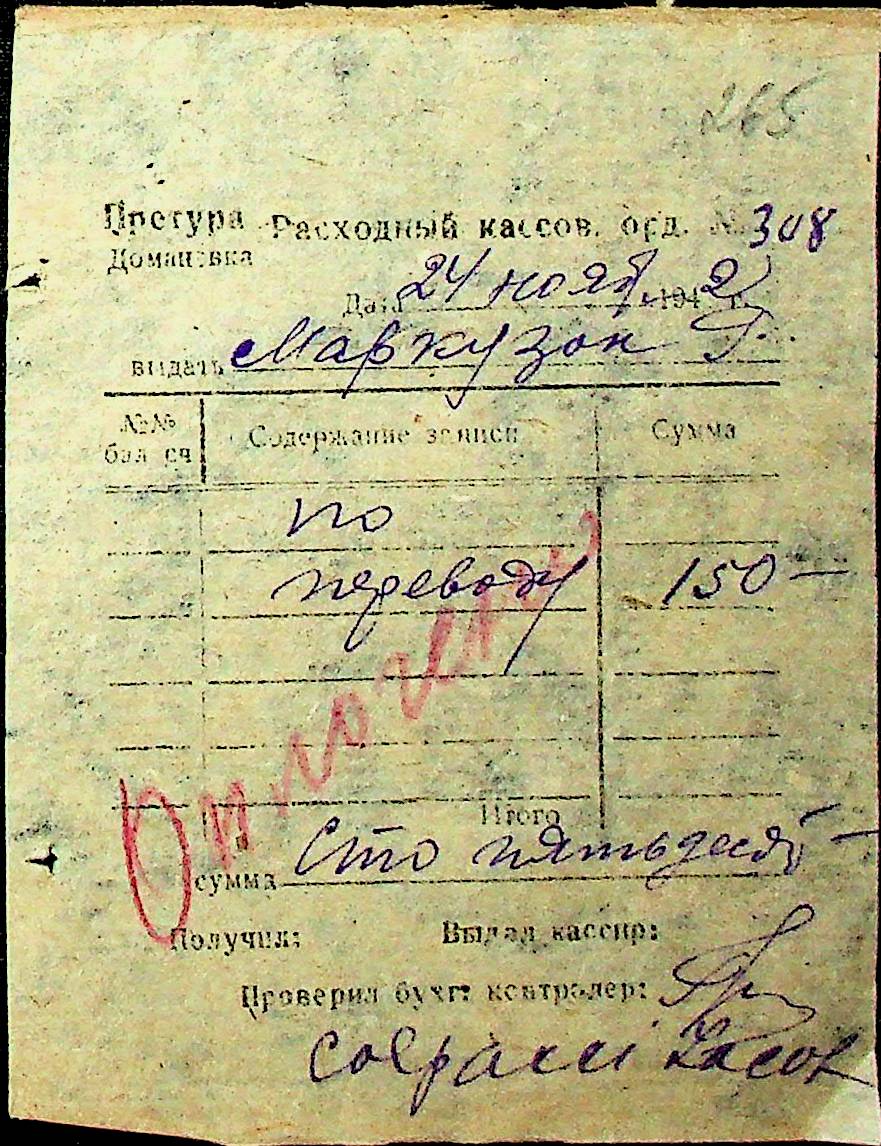 265
Претура Расходный кассов. орд. № 308
Домановка
Дата 24 нояб. 1942 г.
выдать Маркузон Г.
№№ бал сч Содержание записи Сумма
по
переводу 150 —
Оплочено
Итого
сумма Сто пятьдесят —
Получил: Выдал кассир:
Проверил бухг: контролер: